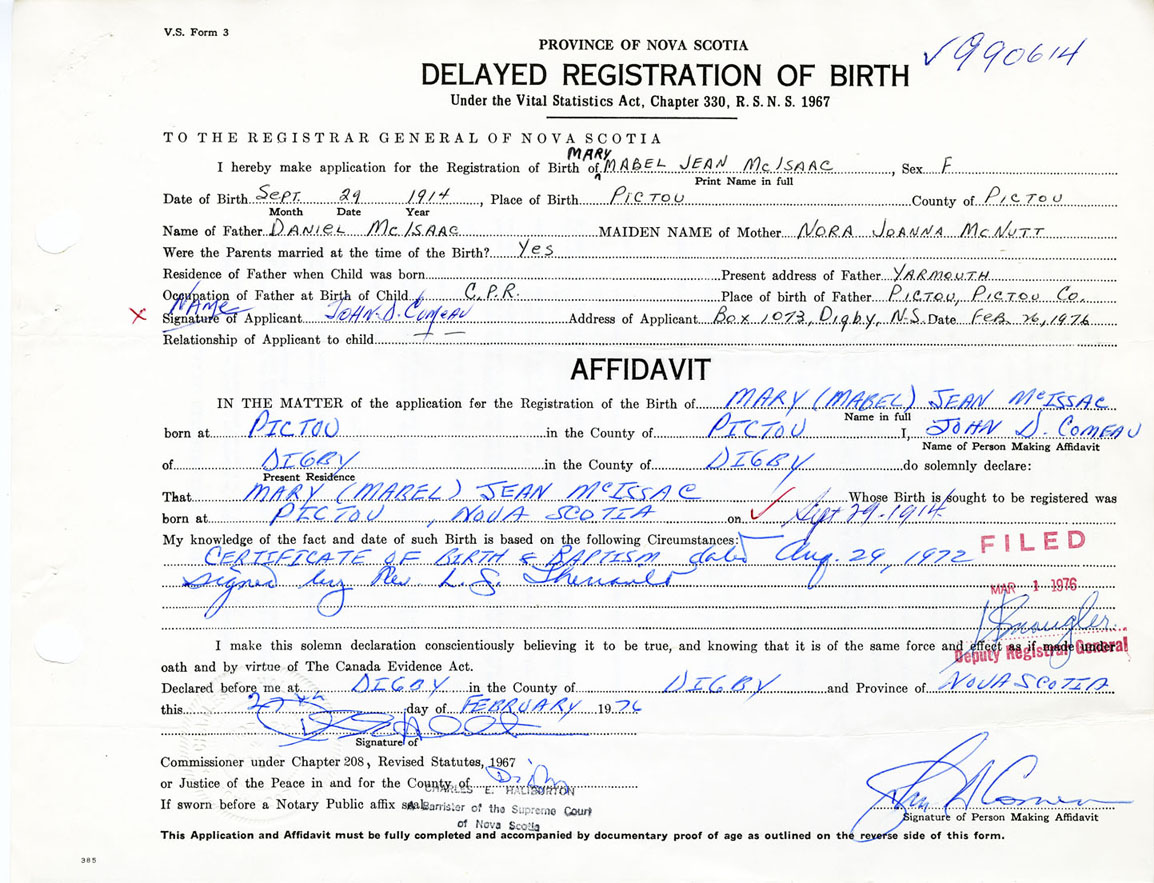 V.S. Form 3
PROVINCE OF NOVA SCOTIA
✓990614
DELAYED REGISTRATION OF BIRTH
Under the Vital Statistics Act, Chapter 330, R.S.N.S. 1967
TO THE REGISTRAR GENERAL OF NOVA SCOTIA
MARY
I hereby make application for the Registration of Birth of MABEL JEAN McISAAC, Sex F
Print Name in full
Date of Birth SEPT. 29 1914, Place of Birth PICTOU County of PICTOU
Month Date Year
Name of Father DANIEL McISAAC MAIDEN NAME of Mother NORA JOANNA McNUTT
Were the Parents married at the time of the Birth? YES
Residence of Father when Child was born Present address of Father YARMOUTH
Occupation of Father at Birth of Child C.P.R. Place of birth of Father PICTOU, PICTOU CO.
NAME
x Signature of Applicant JOHN D. COMEAU Address of Applicant Box 1073, Digby, N.S. Date FEB. 26, 1976
Relationship of Applicant to child
AFFIDAVIT
IN THE MATTER of the application for the Registration of the Birth of MARY (MABEL) JEAN McISSAC
Name in full
born at PICTOU in the County of PICTOU I, JOHN D. COMEAU
Name of Person Making Affidavit
of DIGBY in the County of DIGBY do solemnly declare:
Present Residence
That MARY (MABEL) JEAN McISSAC Whose Birth is sought to be registered was
born at PICTOU, NOVA SCOTIA on ✓ Sept 29. 1914
My knowledge of the fact and date of such Birth is based on the following Circumstances:
CERTIFICATE OF BIRTH & BAPTISM dated Aug. 29, 1972
signed by Rev L. J. Theriault
FILED
MAR 1 1976
Deputy Registrar General
I make this solemn declaration conscientiously believing it to be true, and knowing that it is of the same force and effect as if made under
oath and by virtue of The Canada Evidence Act.
Declared before me at DIGBY in the County of DIGBY and Province of NOVA SCOTIA
this 27th day of FEBRUARY 1976
Signature of
Commissioner under Chapter 208, Revised Statutes, 1967
or Justice of the Peace in and for the County of Digby
CHARLES E. HALIBURTON
If sworn before a Notary Public affix seal
A Barrister of the Supreme Court
of Nova Scotia
John D Comeau
Signature of Person Making Affidavit
This Application and Affidavit must be fully completed and accompanied by documentary proof of age as outlined on the reverse side of this form.
385